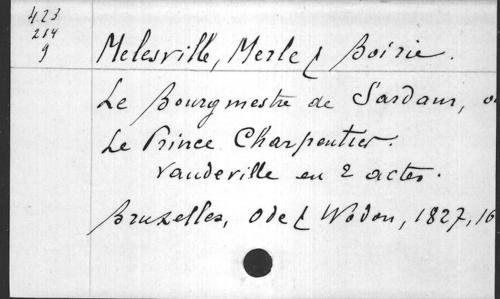 423
214
9
Melesville, Merle & Boirie.
Le Bourgmestre de Sardam, o
Le Prince Charpentier.
Vaudeville en 2 actes.
Bruxelles, Ode & Wodon, 1827, 16